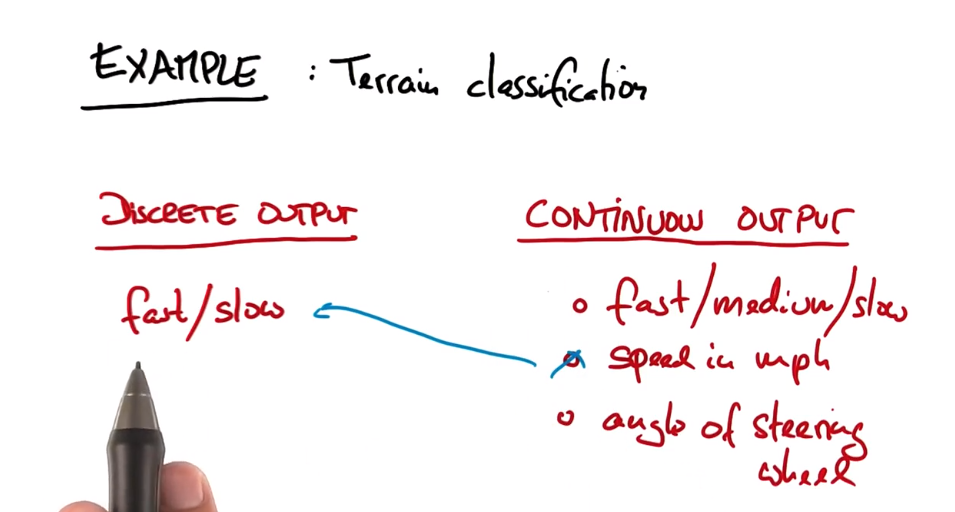 EXAMPLE : Terrain classification
DISCRETE OUTPUT
fast/slow
CONTINUOUS OUTPUT
fast/medium/slow
speed in mph
angle of steering
wheel